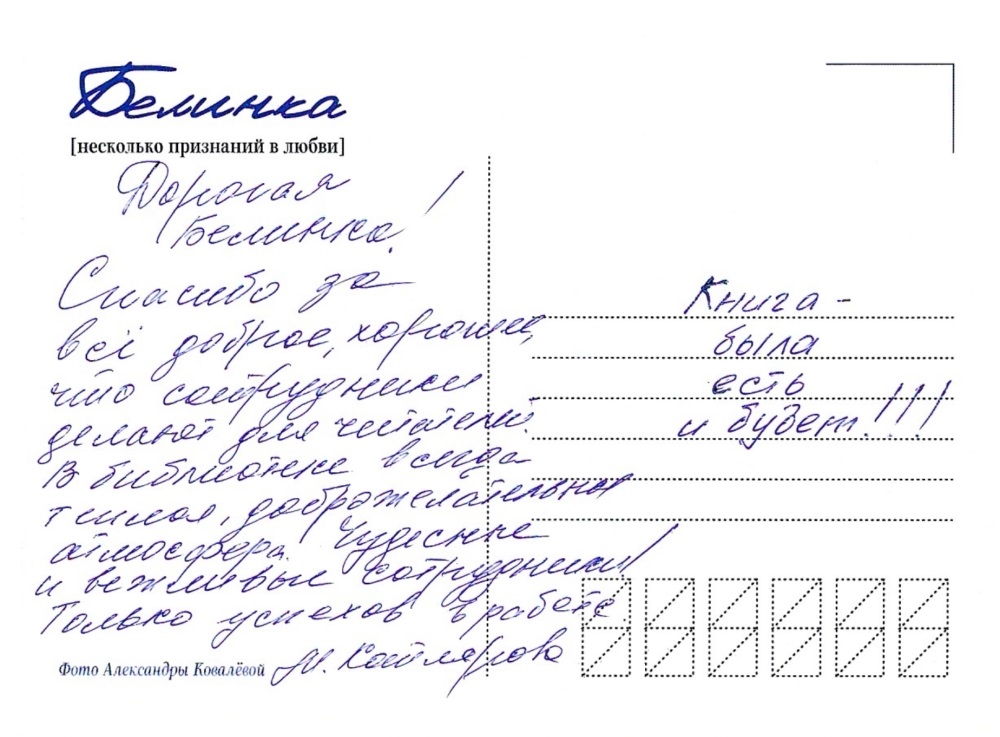 Белинка
[несколько признаний в любви]
Дорогая
Белинка!
Спасибо за
всё доброе, хорошее,
что сотрудники
делают для читателей.
В библиотеке всегда
теплая, доброжелательная
атмосфера. Чудесные
и вежливые сотрудники!
Только успехов в работе.
Фото Александры Ковалёвой
Книга -
была
есть
и будет!!!